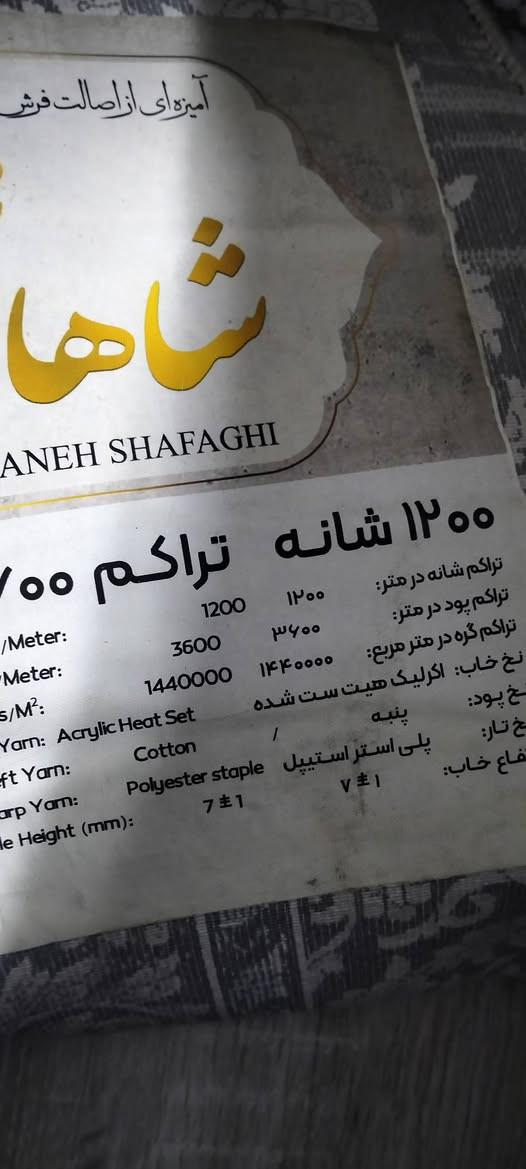 آمیزه‌ای از اصالت فرش
شاها
ANEH SHAFAGHI
۱۲۰۰ شانه تراکم
تراکم شانه در متر: ۱۲۰۰ 1200 /Meter:
تراکم پود در متر: ۳۶۰۰ 3600 /Meter:
تراکم گره در متر مربع: ۱۴۴۰۰۰۰ 1440000 s/M²:
نخ خاب: اکرلیک هیت ست شده Acrylic Heat Set Yarn:
خ پود: پنبه / Cotton ft Yarn:
خ تار: پلی استر استیپل Polyester staple arp Yarn:
فاع خاب: ۷±۱ 7±1 le Height (mm):